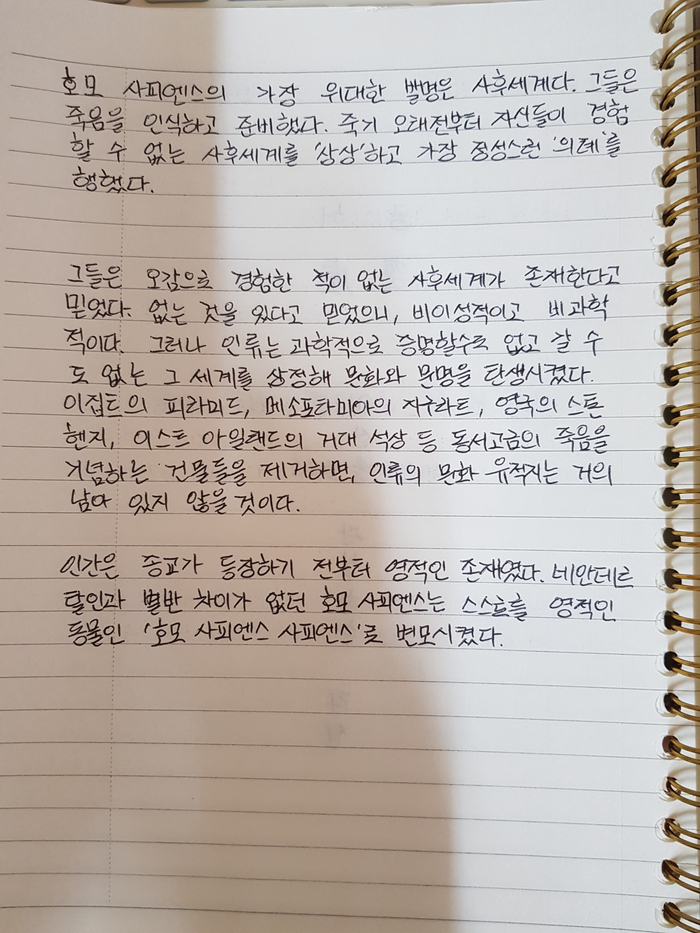 호모 사피엔스의 가장 위대한 발명은 사후세계다. 그들은
죽음을 인식하고 준비했다. 죽기 오래전부터 자신들이 경험
할 수 없는 사후세계를 '상상'하고 가장 정성스런 '의례'를
행했다.
그들은 오감으로 경험한 적이 없는 사후세계가 존재한다고
믿었다. 없는 것을 있다고 믿었으니, 비이성적이고 비과학
적이다. 그러나 인류는 과학적으로 증명할수도 없고 갈 수
도 없는 그 세계를 상정해 문화와 문명을 탄생시켰다.
이집트의 피라미드, 메소포타미아의 지구라트, 영국의 스톤
헨지, 이스트 아일랜드의 거대 석상 등 동서고금의 죽음을
기념하는 건물들을 제거하면, 인류의 문화 유적지는 거의
남아 있지 않을 것이다.
인간은 종교가 등장하기 전부터 영적인 존재였다. 네안데르
탈인과 별반 차이가 없던 호모 사피엔스는 스스로를 영적인
동물인 '호모 사피엔스 사피엔스'로 변모시켰다.